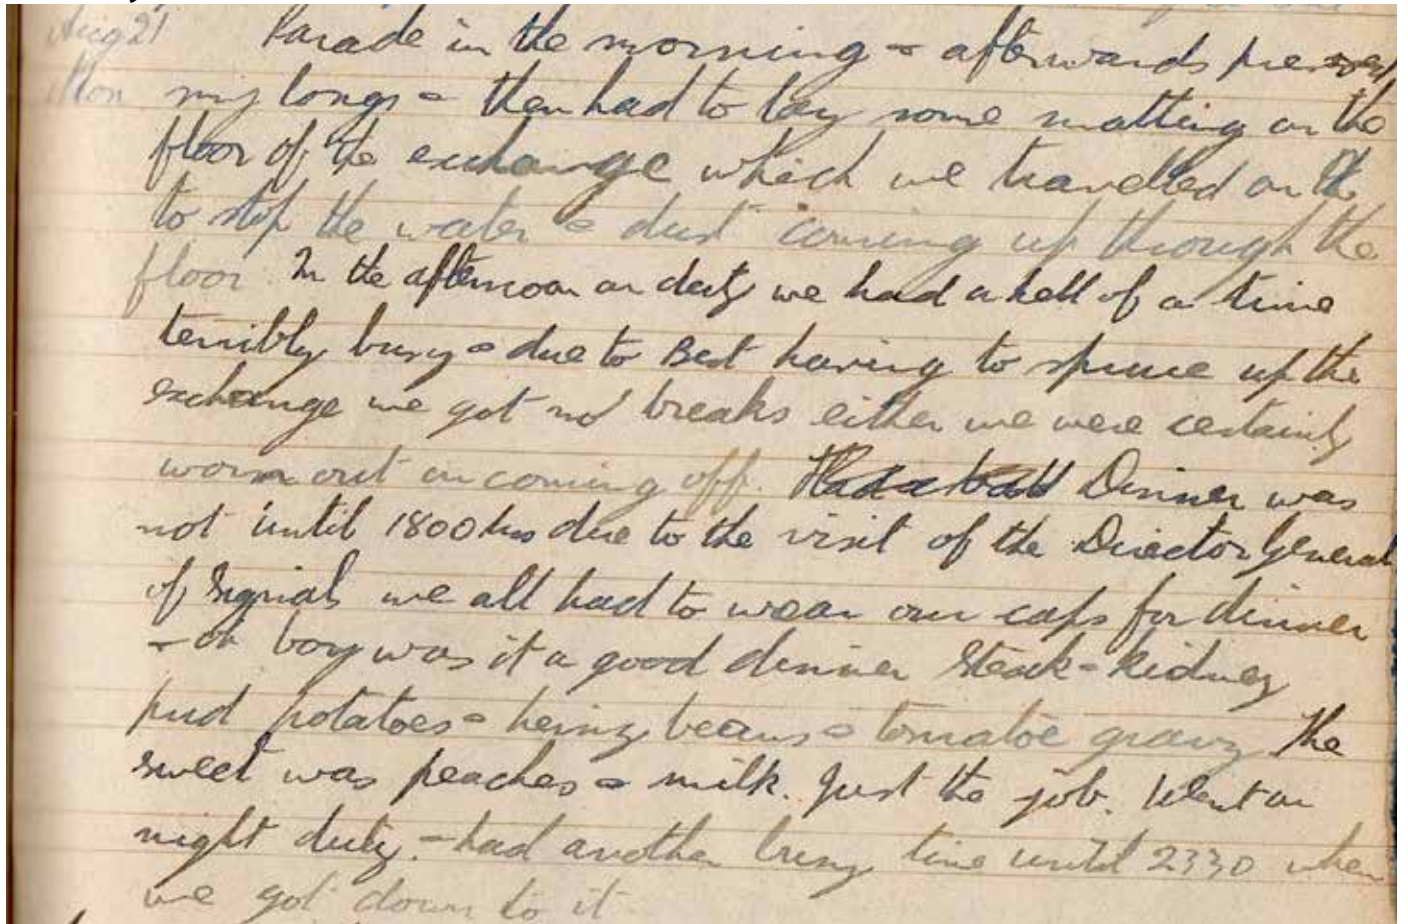 Aug 21 Parade in the morning & afterwards pressed
Mon my longs & then had to lay some matting on the
floor of the exchange which we travelled on
to stop the water & dust coming up through the
floor. In the afternoon on duty we had a hell of a time
terribly busy & due to Best having to spruce up the
exchange we got no breaks either we were certainly
worn out on coming off. Had a ball Dinner was
not until 1800 hrs due to the visit of the Director General
of Signals we all had to wear our caps for dinner
- oh boy was it a good dinner Steak & Kidney
pud potatoes & heinz beans & tomatoe gravy The
sweet was peaches & milk. Just the job. Went on
night duty. - had another busy time until 2330 when
we got down to it